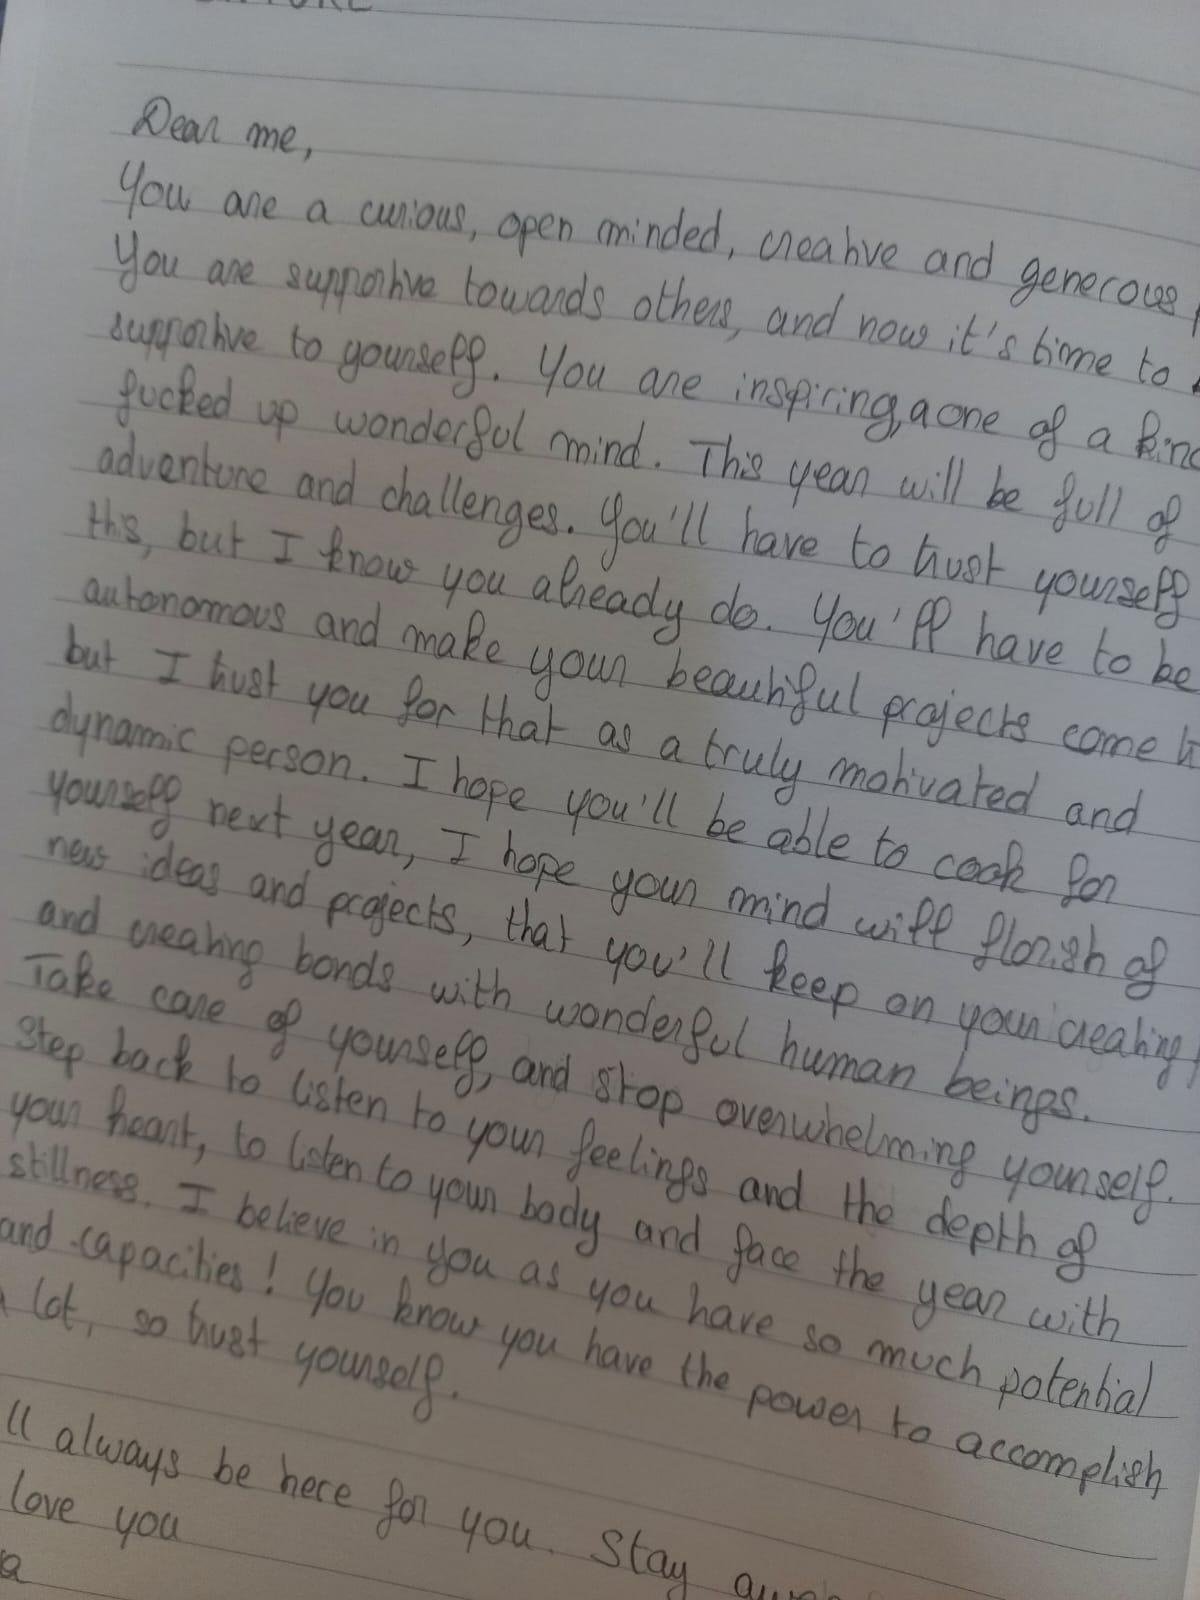 Dear me,
You are a curious, open minded, creative and generous
You are supportive towards others, and now it's time to
supportive to yourself. You are inspiring, a one of a kind
fucked up wonderful mind. This year will be full of
adventure and challenges. You'll have to trust yourself
this, but I know you already do. You'll have to be
autonomous and make your beautiful projects come
but I trust you for that as a truly motivated and
dynamic person. I hope you'll be able to cook for
yourself next year, I hope your mind will florish of
new ideas and projects, that you'll keep on your creating
and creating bonds with wonderful human beings.
Take care of yourself, and stop overwhelming yourself.
Step back to listen to your feelings and the depth of
your heart, to listen to your body and face the year with
stillness. I believe in you as you have so much potential
and capacities! You know you have the power to accomplish
a lot, so trust yourself.
'll always be here for you. Stay
love you